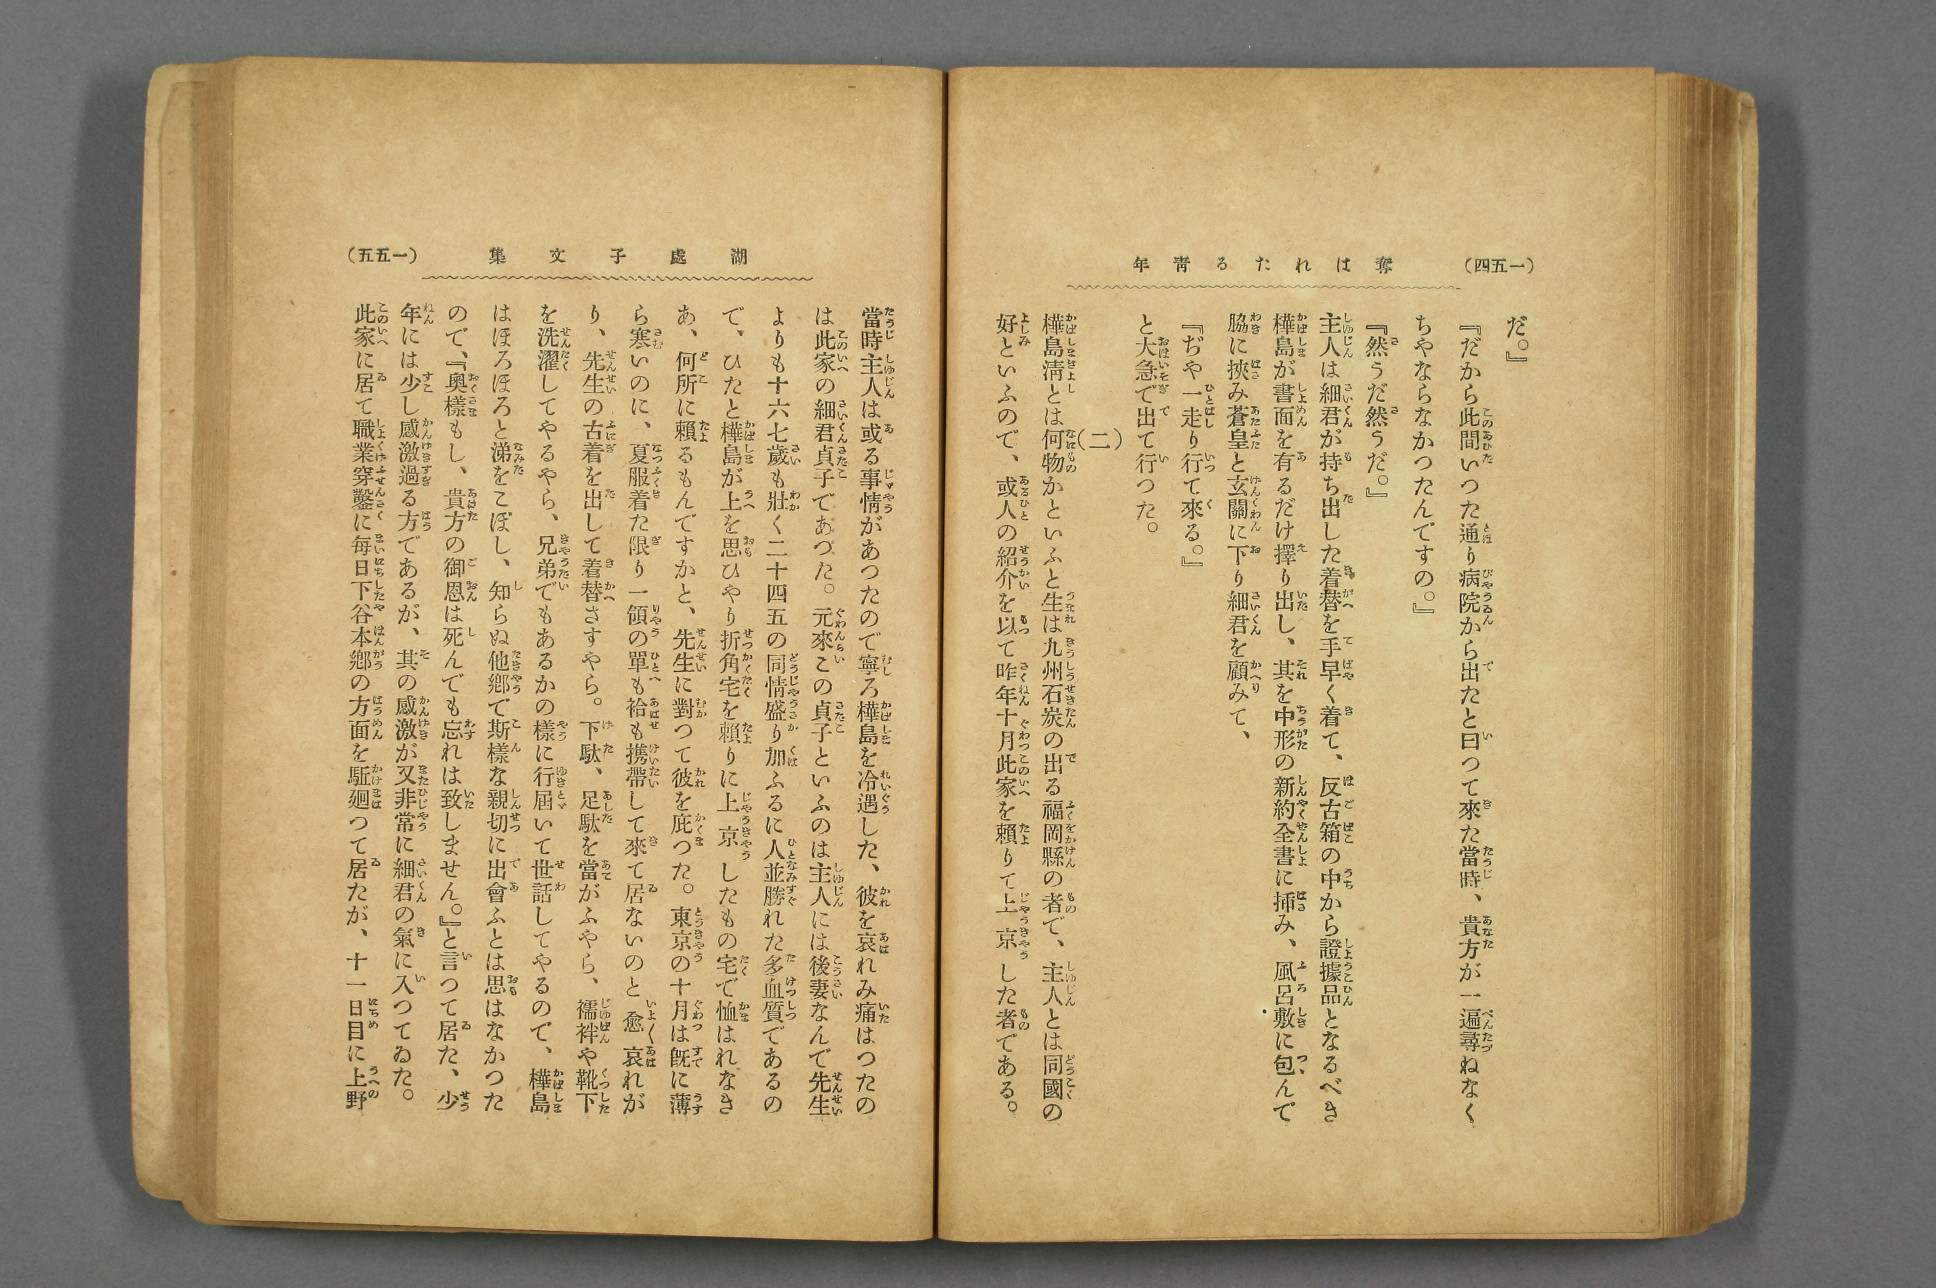 奪はれたる靑年
(一五四)
だ。』
『だから此間いつた通り病院から出たと曰つて來た當時、貴方が一遍尋ねなく
ちやならなかつたんですの。』
『然うだ然うだ。』
主人は細君が持ち出した着替を手早く着て、反古箱の中から證據品となるべき
樺島が書面を有るだけ擇り出し、其を中形の新約全書に挿み、風呂敷に包んで
脇に挾み蒼皇と玄關に下り細君を顧みて、
『ぢや一走り行て來る。』
と大急で出て行つた。
(二)
樺島淸とは何物かといふと生は九州石炭の出る福岡縣の者で、主人とは同國の
好といふので、或人の紹介を以て昨年十月此家を賴りて上京した者である。
湖處子文集
(一五五)
當時主人は或る事情があつたので寧ろ樺島を冷遇した、彼を哀れみ痛はつたの
は此家の細君貞子であつた。元來この貞子といふのは主人には後妻なんで先生
よりも十六七歲も壯く二十四五の同情盛り加ふるに人並勝れた多血質であるの
で、ひたと樺島が上を思ひやり折角宅を賴りに上京したもの宅で恤はれなき
あ、何所に賴るもんですかと、先生に對つて彼を庇つた。東京の十月は既に薄
ら寒いのに、夏服着た限り一領の單も袷も携帶して來て居ないのと愈哀れが
り、先生の古着を出して着替さすやら。下駄、足駄を當がふやら、襦袢や靴下
を洗濯してやるやら、兄弟でもあるかの樣に行屆いて世話してやるので、樺島
はほろほろと涕をこぼし、知らぬ他鄕で斯樣な親切に出會ふとは思はなかつた
ので、『奧樣もし、貴方の御恩は死んでも忘れは致しません。』と言つて居た、少
年には少し感激過る方であるが、其の感激が又非常に細君の氣に入つてゐた。
此家に居て職業穿鑿に每日下谷本鄕の方面を駈廻つて居たが、十一日目に上野